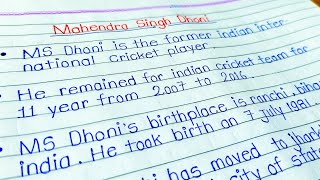 Mahendra Singh Dhoni
• MS Dhoni is the former indian inter
national Cricket player.
• He remained for indian cricket team for
11 year from 2007 to 2016.
• MS Dhoni's birthplace is ranchi, bihar
india. He took birth on 7 july 1981.
has moved to jhark
city of state